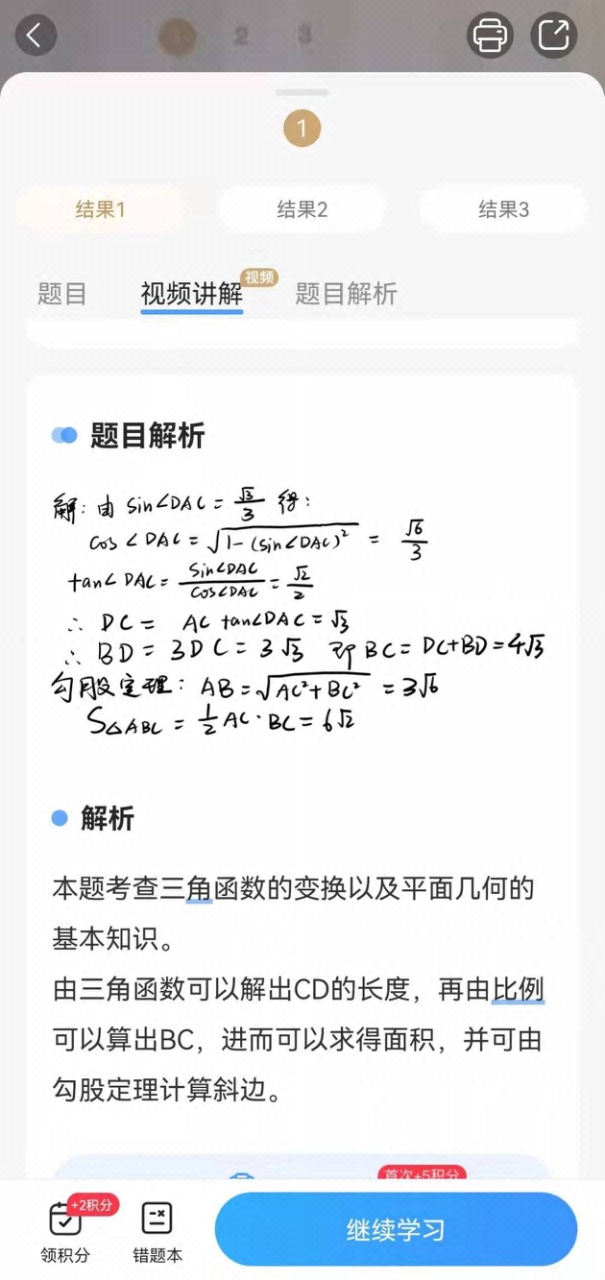 1 2 3
1
结果1 结果2 结果3
题目 视频讲解 视频 题目解析
题目解析
解: 由 sin∠DAC = √3/3 得:
cos∠DAC = √(1-(sin∠DAC)²) = √6/3
tan∠DAC = sin∠DAC/cos∠DAC = √2/2
∴ DC = AC tan∠DAC = √3
∴ BD = 3DC = 3√3 即 BC = DC+BD = 4√3
勾股定理: AB = √(AC²+BC²) = 3√6
S△ABC = 1/2 AC·BC = 6√2
解析
本题考查三角函数的变换以及平面几何的
基本知识。
由三角函数可以解出CD的长度，再由比例
可以算出BC，进而可以求得面积，并可由
勾股定理计算斜边。
首次+5积分
+2积分
领积分 错题本 继续学习